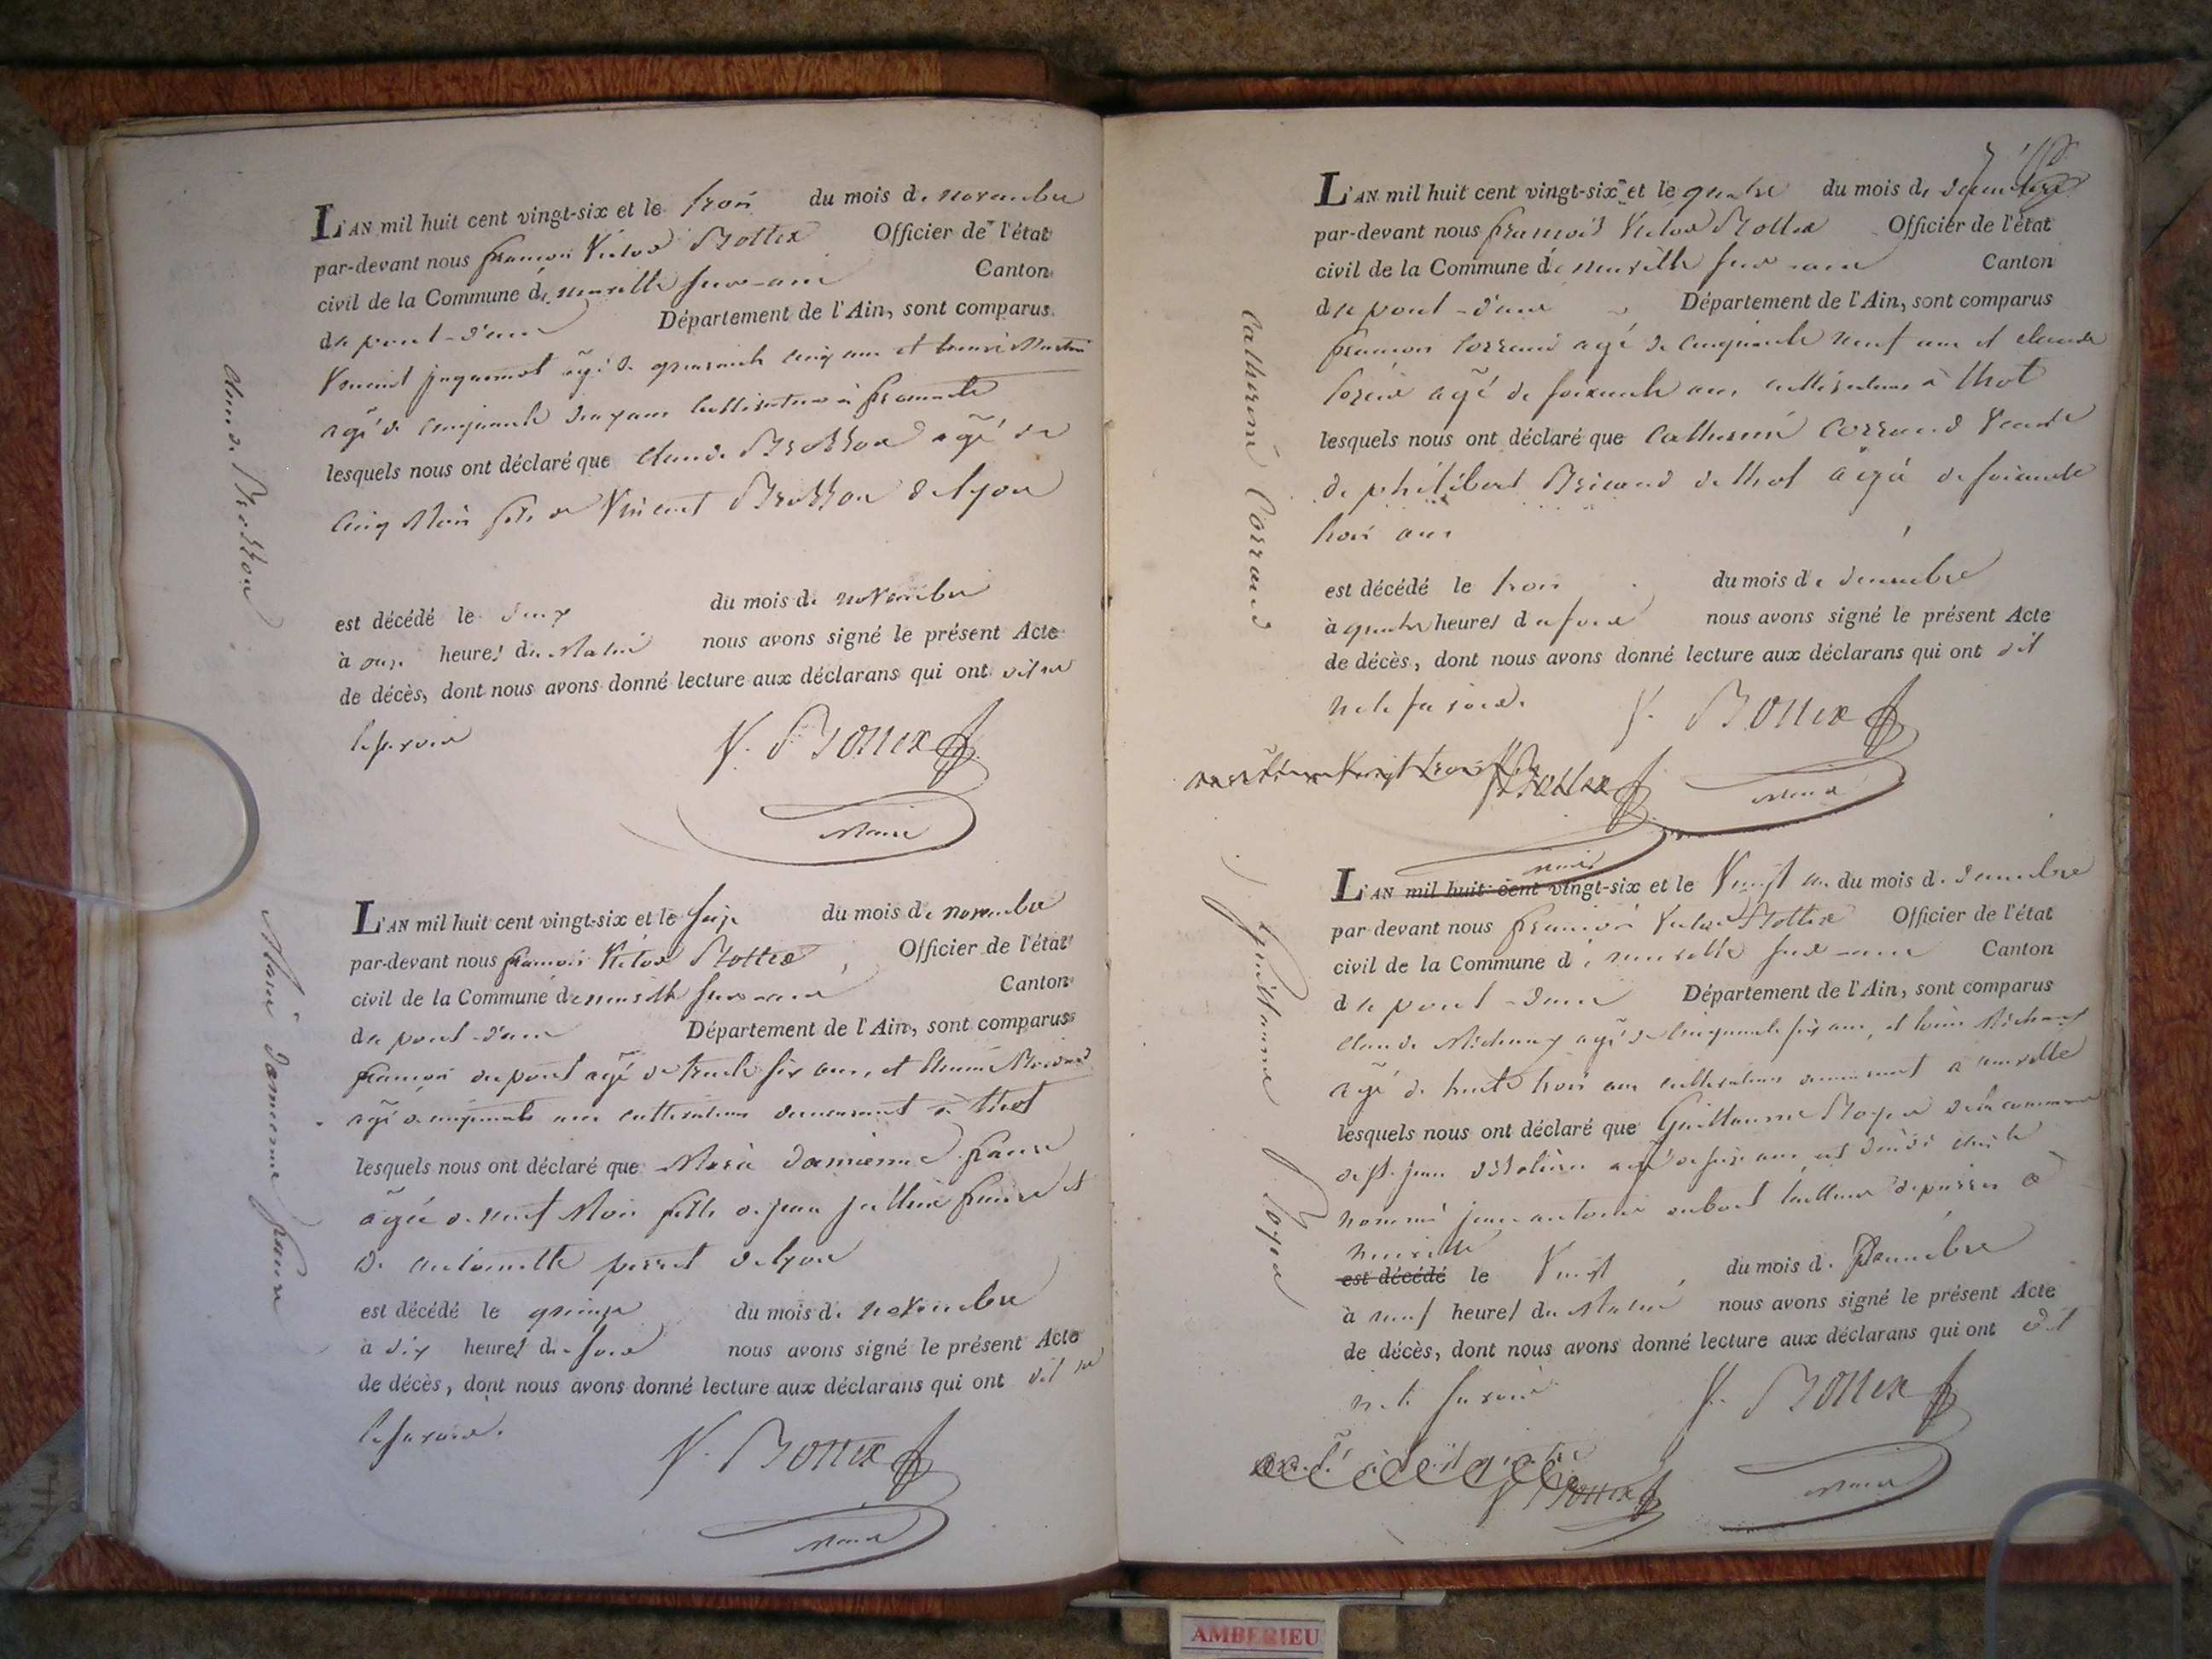 Claude Brosson
L'AN mil huit cent vingt-six et le trois du mois de novembre
par-devant nous françois Victor Bottex Officier de l'état
civil de la Commune de neuville sur-ain Canton
de pont-d'ain Département de l'Ain, sont comparus
Vincent juquemot agé de quarante cinq ans et
agé de cinquante deux ans cultivateurs à
lesquels nous ont déclaré que Claude Brosson agé de
cinq Mois fils de Vincent Brosson de lyon
est décédé le deux du mois de novembre
à onze heures du Matin nous avons signé le présent Acte
de décès, dont nous avons donné lecture aux déclarans qui ont dit ne
le savoir
V. Bottex
Maire
Marie damienne faure
L'AN mil huit cent vingt-six et le seize du mois de novembre
par-devant nous françois Victor Bottex Officier de l'état
civil de la Commune de neuville sur-ain Canton
de pont-d'ain Département de l'Ain, sont comparus
françois dupont agé de trente six ans, et
agé de cinquante ans cultivateurs demeurant à thol
lesquels nous ont déclaré que Marie damienne faure
agée de neuf Mois fille de jean faure et
de antoinette perret de lyon
est décédé le quinze du mois de novembre
à dix heures du soir nous avons signé le présent Acte
de décès, dont nous avons donné lecture aux déclarans qui ont dit ne
le savoir.
V. Bottex
Maire
Catherine Corrand
L'AN mil huit cent vingt-six et le quatre du mois de décembre
par-devant nous françois Victor Bottex Officier de l'état
civil de la Commune de neuville sur-ain Canton
de pont-d'ain Département de l'Ain, sont comparus
françois Corrand agé de cinquante neuf ans et claude
agé de soixante ans cultivateurs à thol
lesquels nous ont déclaré que Catherine Corrand Veuve
de philibert Bricand de thol agée de soixante
trois ans
est décédé le trois du mois de décembre
à quatre heures du soir nous avons signé le présent Acte
de décès, dont nous avons donné lecture aux déclarans qui ont dit
ne le savoir.
V. Bottex
Maire
V. Bottex
maire
Guillaume Boyer
L'AN mil huit cent vingt-six et le Vingt un du mois de décembre
par devant nous françois Victor Bottex Officier de l'état
civil de la Commune de neuville sur-ain Canton
de pont-d'ain Département de l'Ain, sont comparus
claude Michaux agé de cinquante six ans, et louis Michaux
agé de trente trois ans cultivateurs demeurant à neuville
lesquels nous ont déclaré que Guillaume Boyer de la commune
de st. jean agé de ans est décédé chez le
nommé jean antoine tailleur de pierres à
neuville
est décédé le Vingt du mois de Décembre
à neuf heures du Matin nous avons signé le présent Acte
de décès, dont nous avons donné lecture aux déclarans qui ont dit
ne le savoir
V. Bottex
Maire
V. Bottex
AMBERIEU